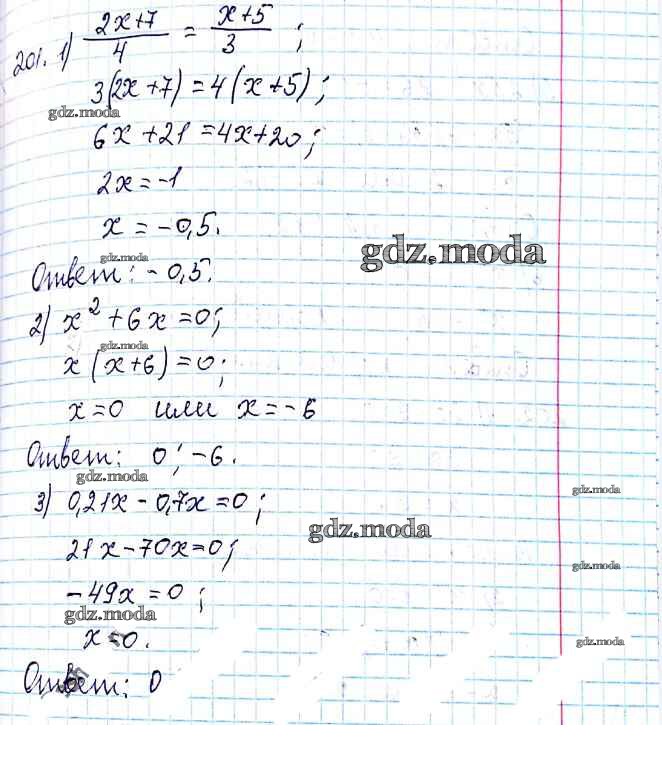 201. 1) (2x+7)/4 = (x+5)/3 ;
3(2x+7)=4(x+5);
gdz.moda
6x+21=4x+20;
2x=-1
x=-0,5.
gdz.moda
gdz.moda
Ответ: -0,5.
2) x²+6x=0;
gdz.moda
x(x+6)=0;
x=0 или x=-6
Ответ: 0; -6.
gdz.moda
gdz.moda
3) 0,21x-0,7x=0;
gdz.moda
21x-70x=0;
gdz.moda
-49x=0;
gdz.moda
x=0.
gdz.moda
Ответ: 0